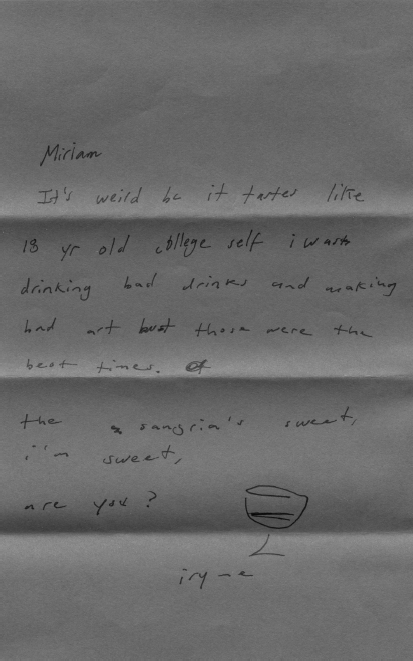 Miriam
It's weird bc it tastes like
18 yr old college self i was
drinking bad drinks and making
bad art but those were the
best times.
the sangria's sweet,
i'm sweet,
are you?